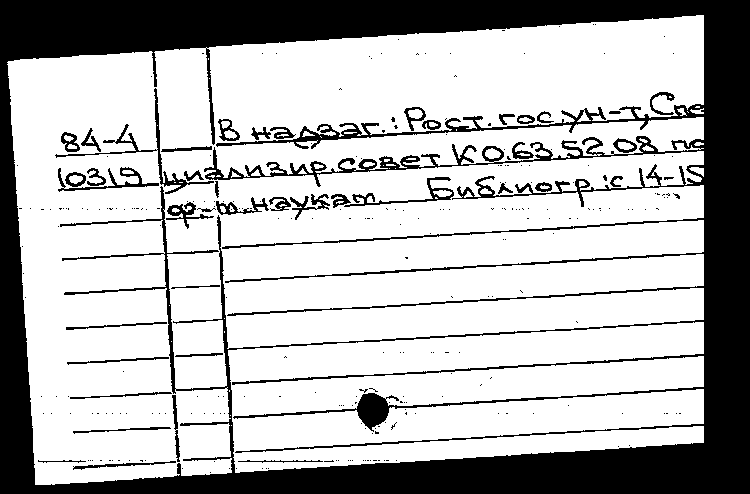 84-4 В надзаг.: Рост. гос. ун-т, Спе
10319 циализир. совет К 0.63.52.08 по
ф.-м. наукам. Библиогр.: с 14-15